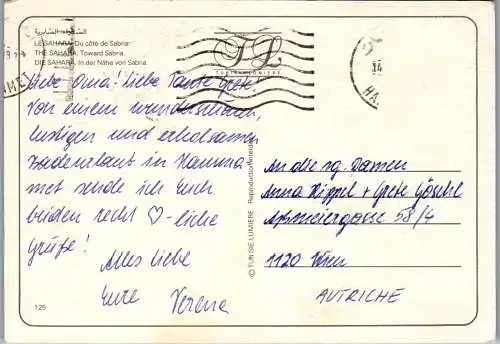 الصحراء الصابرية
LE SAHARA. Du côté de Sabria.
THE SAHARA. Toward Sabria.
DIE SAHARA. In der Nähe von Sabria.
TUNISIE LUMIERE
Liebe Oma! Liebe Tante Grete!
Von einem wunderschönen,
lustigen und erholsamen
Badeurlaub in Hamma-
met sende ich Euch
beiden recht ♡-liche
Grüße!
Alles Liebe
Eure Verena
125
© TUNISIE LUMIERE Reproduction interdite
HA.
An die sg. Damen
Anna Hippel + Grete Göschl
58/4
1120 Wien
AUTRICHE